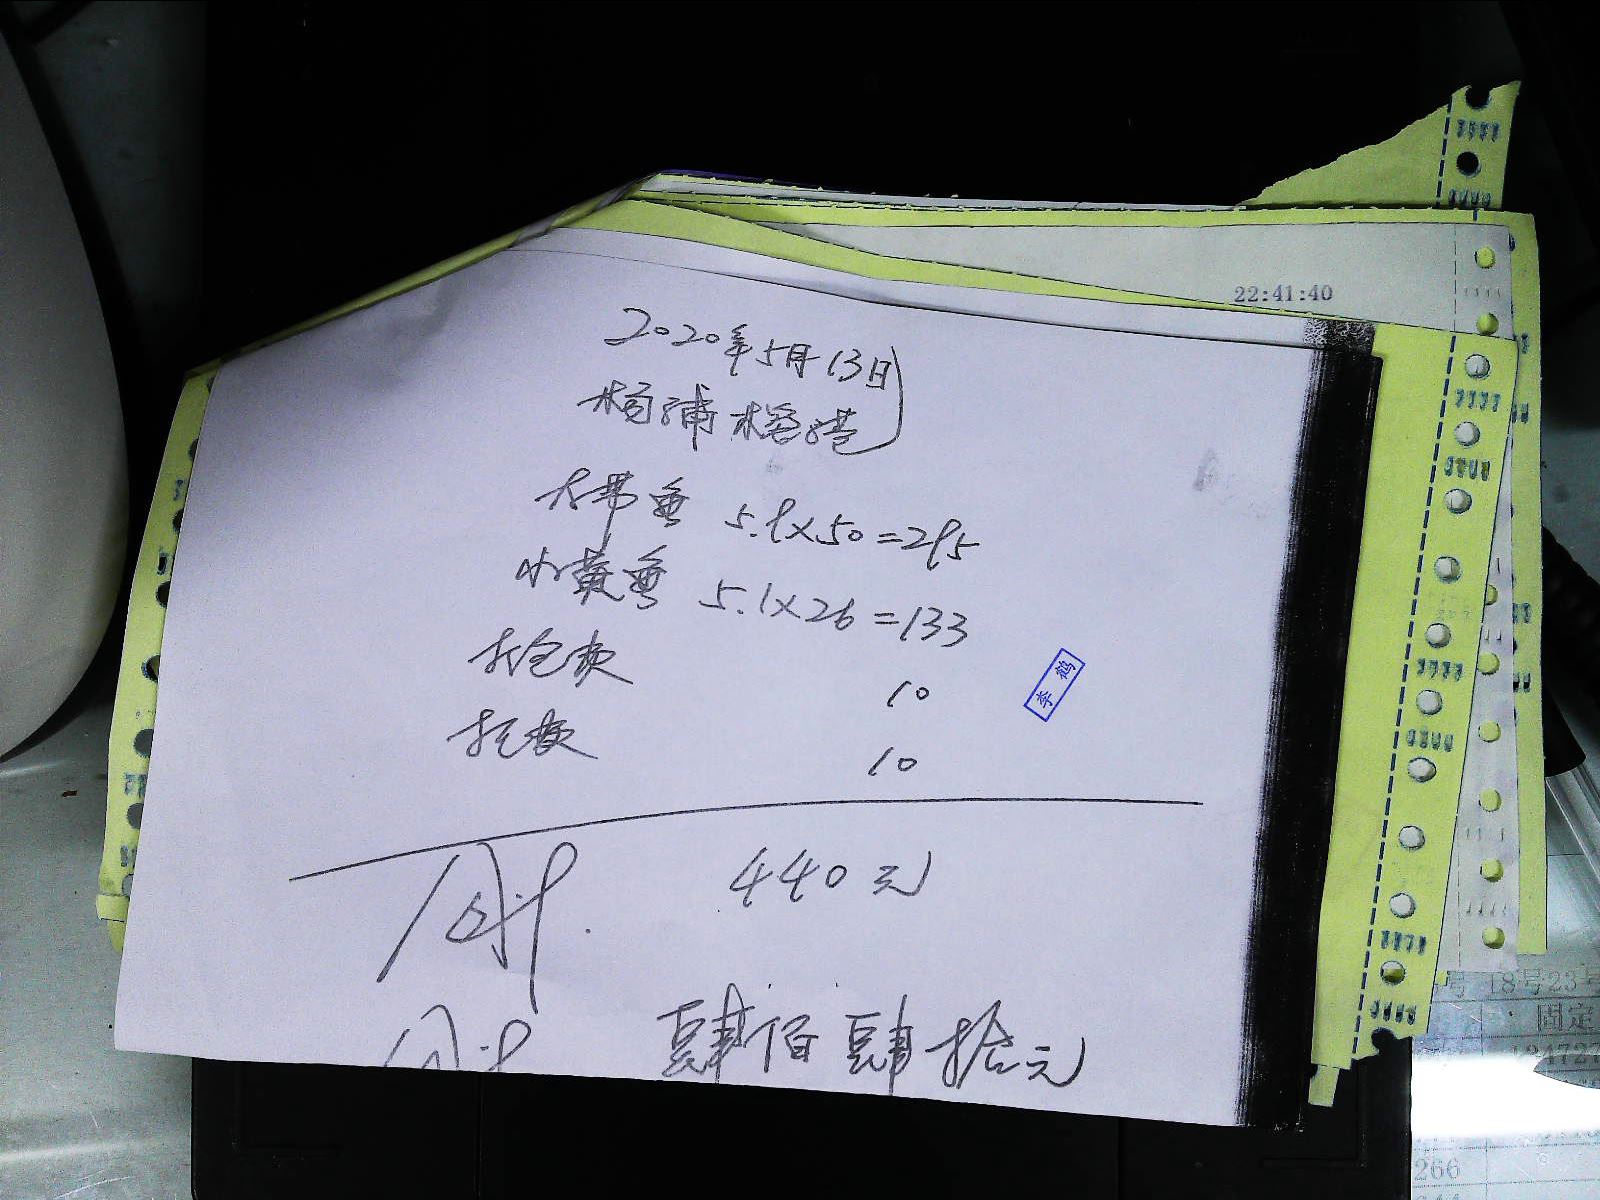 22:41:40
2020年5月13日
杨浦
5.9×50=295
小黄鱼 5.1×26=133
打包费 10
李鹤
10
合计 440元
合计 肆佰肆拾元
号 18号23号
固定
266